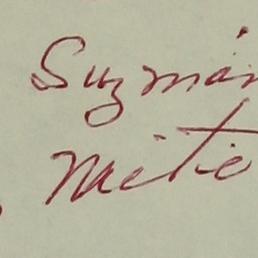 Suzmán
Mitie